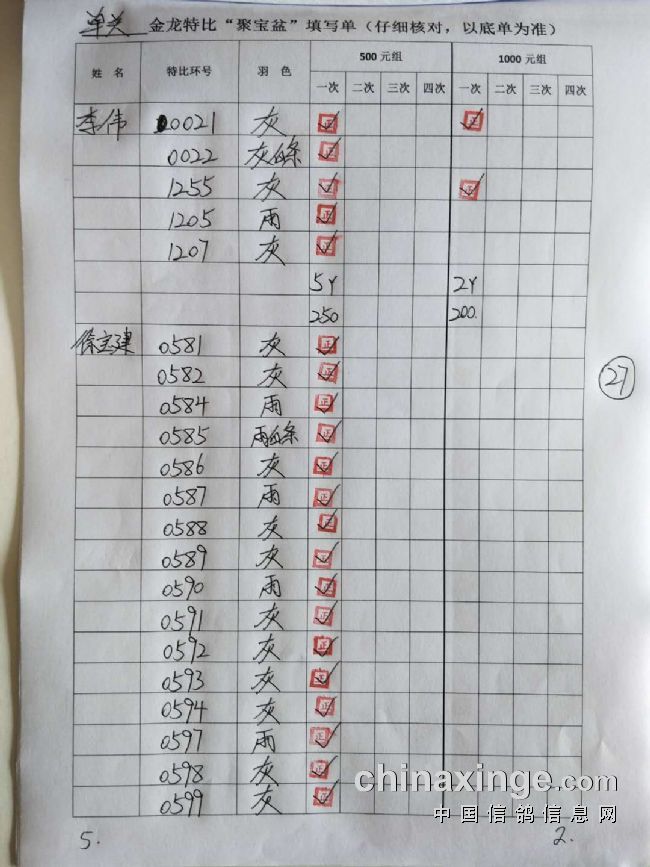 单关 金龙特比“聚宝盆”填写单（仔细核对，以底单为准）
姓 名 特比环号 羽 色 500 元组 1000 元组
一次 二次 三次 四次 一次 二次 三次 四次
李伟 0021 灰 正 ✓ 正 ✓
0022 灰白条 正 ✓
1255 灰 正 ✓ 正 ✓
1205 雨 正 ✓
1207 灰 正 ✓
5Y 2Y
250 200.
徐宝建 0581 灰 正 ✓
0582 灰 正 ✓
0584 雨 正 ✓
0585 雨白条 正 ✓
0586 灰 正 ✓
0587 雨 正 ✓
0588 灰 正 ✓
0589 灰 正 ✓
0590 雨 正 ✓
0591 灰 正 ✓
0592 灰 正 ✓
0593 灰 正 ✓
0594 灰 正 ✓
0597 雨 正 ✓
0598 灰 正 ✓
0599 灰 正 ✓
27
chinaxinge.com
中国信鸽信息网
5. 2.